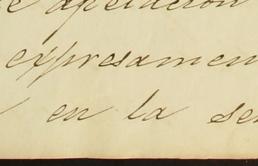 e apelación
expresamen
en la se